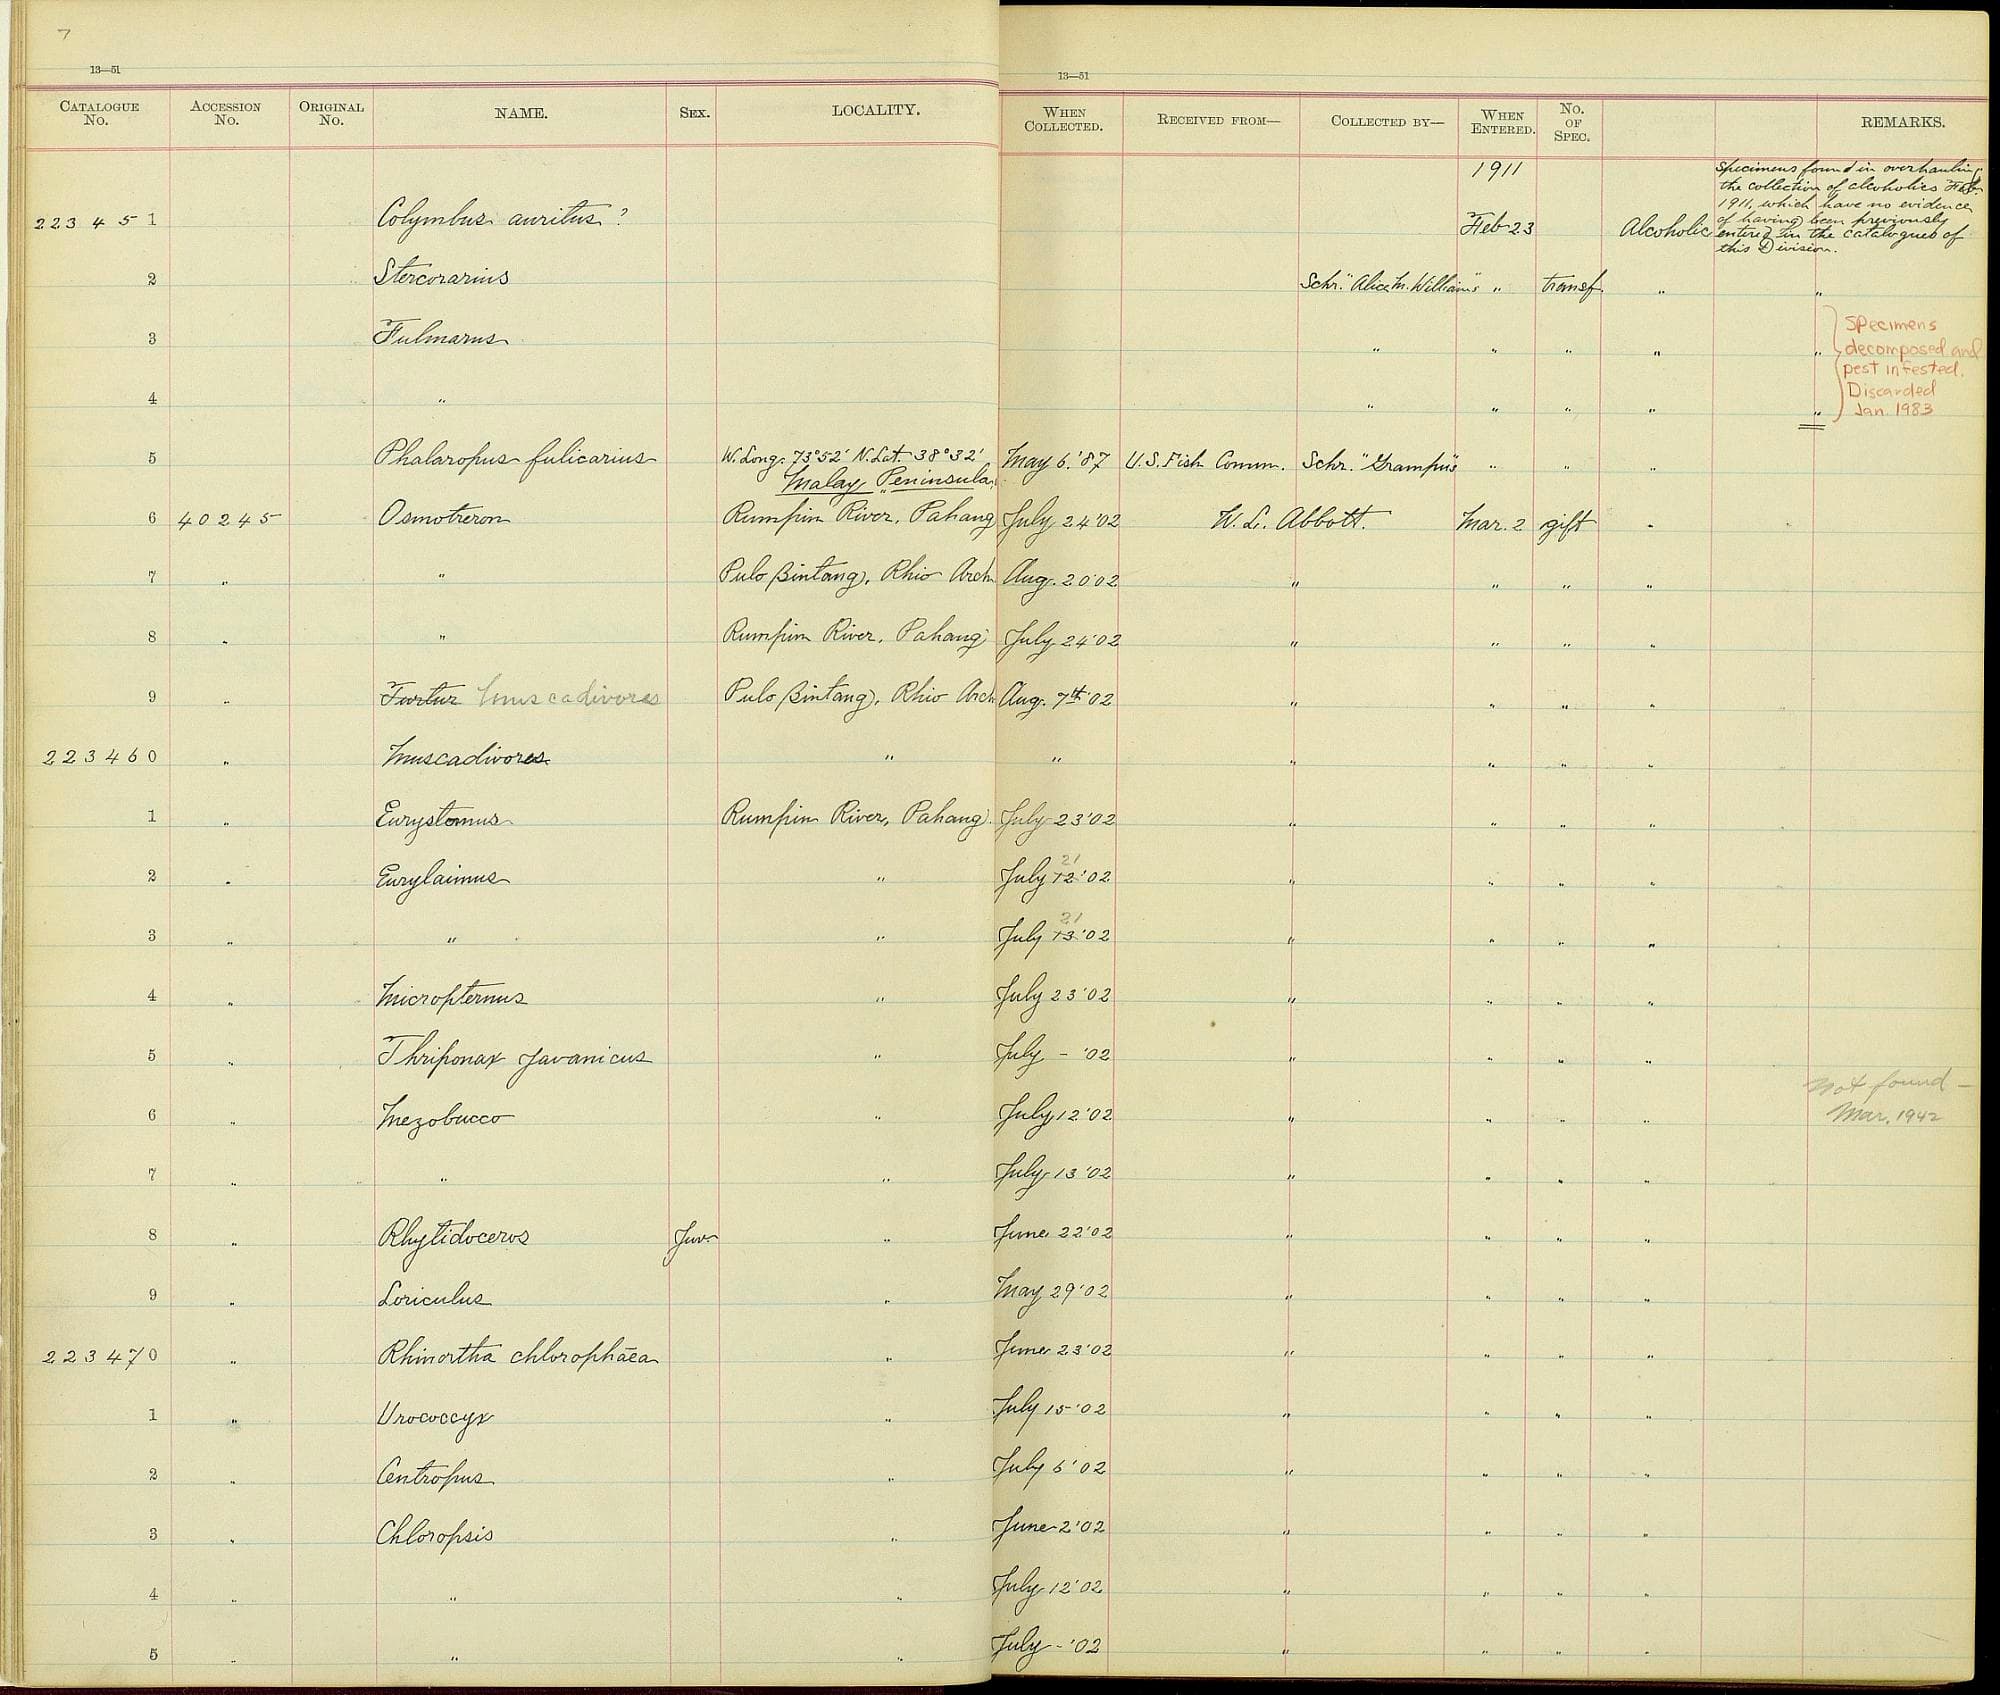 7
13—51
13—51
CATALOGUE No. ACCESSION No. ORIGINAL No. NAME. SEX. LOCALITY. WHEN COLLECTED. RECEIVED FROM— COLLECTED BY— WHEN ENTERED. No. OF SPEC. REMARKS.
1911
Specimens found in overhauling
the collection of alcoholics Feb.
1911, which have no evidence
of having been previously
entered in the catalogues of
this Division.
223451 Colymbus auritus? Feb 23 Alcoholic
2 Stercorarius Schr. "Alice M. Williams" " transf. " "
3 Fulmarus " " " " "
4 " " " " " "
Specimens
decomposed and
pest infested.
Discarded
Jan. 1983
5 Phalaropus fulicarius W. Long. 73°52' N. Lat. 38°32' May 6. '87 U.S. Fish Comm. Schr. "Grampus" " " "
Malay Peninsula
6 40245 Osmotreron Rumpin River, Pahang July 24 '02 W. L. Abbott. Mar. 2 gift "
7 " " Pulo Bintang, Rhio Arch Aug. 20 '02 " " " "
8 " " Rumpin River, Pahang July 24 '02 " " " "
9 " Turtur Muscadivores Pulo Bintang, Rhio Arch Aug. 7th '02 " " " "
223460 " Muscadivores " " " " " "
1 " Eurystomus Rumpin River, Pahang July 23 '02 " " " "
2 " Eurylaimus " July 12 '02 21 " " " "
3 " " " July 13 '02 21 " " " "
4 " Micropternus " July 23 '02 " " " "
5 " Thriponax javanicus " July – '02 " " " "
6 " Mezobucco " July 12 '02 " " " " Not found –
Mar. 1942
7 " " " July 13 '02 " " " "
8 " Rhytidoceros Juv. " June 22 '02 " " " "
9 " Loriculus " May 29 '02 " " " "
223470 " Rhinortha chlorophæa " June 23 '02 " " " "
1 " Urococcyx " July 15 '02 " " " "
2 " Centropus " July 6 '02 " " " "
3 " Chloropsis " June 2 '02 " " " "
4 " " " July 12 '02 " " " "
5 " " " July – '02 " " " "